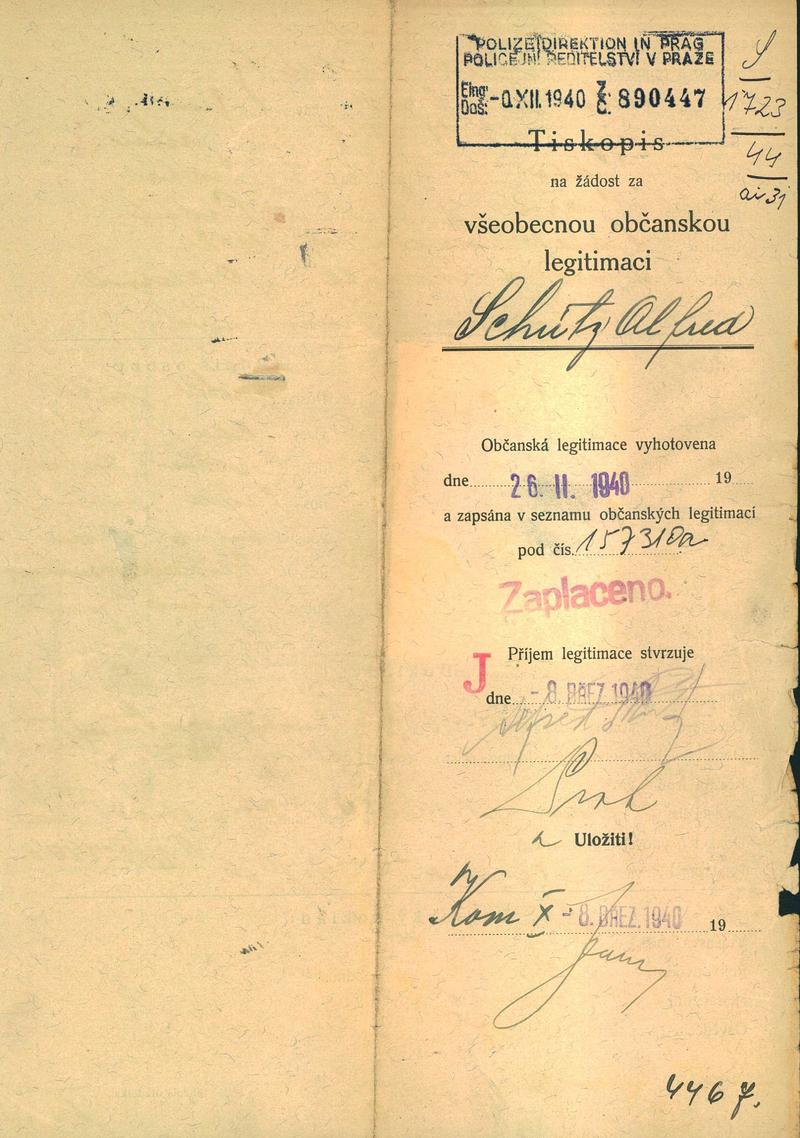 POLIZEIDIREKTION IN PRAG
POLICEJNÍ ŘEDITELSTVÍ V PRAZE
Eing.
Doš. XII. 1940 Z. Č. 890447
S
1723
44
Tiskopis
na žádost za
všeobecnou občanskou
legitimaci
Schütz Alfred
Občanská legitimace vyhotovena
dne 26. II. 1940 19
a zapsána v seznamu občanských legitimací
pod čís. 157310a
Zaplaceno.
J
Příjem legitimace stvrzuje
dne -8. BŘEZ. 1940
Uložiti!
Kom X -8. BŘEZ. 1940 19
4467.